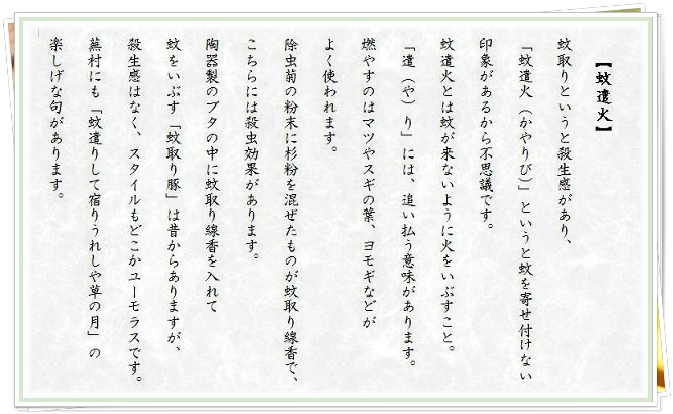 【蚊遣火】
蚊取りというと殺生感があり、
「蚊遣火（かやりび）」というと蚊を寄せ付けない
印象があるから不思議です。
蚊遣火とは蚊が来ないように火をいぶすこと。
「遣（や）り」には、追い払う意味があります。
燃やすのはマツやスギの葉、ヨモギなどが
よく使われます。
除虫菊の粉末に杉粉を混ぜたものが蚊取り線香で、
こちらには殺虫効果があります。
陶器製のブタの中に蚊取り線香を入れて
蚊をいぶす「蚊取り豚」は昔からありますが、
殺生感はなく、スタイルもどこかユーモラスです。
蕪村にも「蚊遣りして宿りうれしや草の月」の
楽しげな句があります。